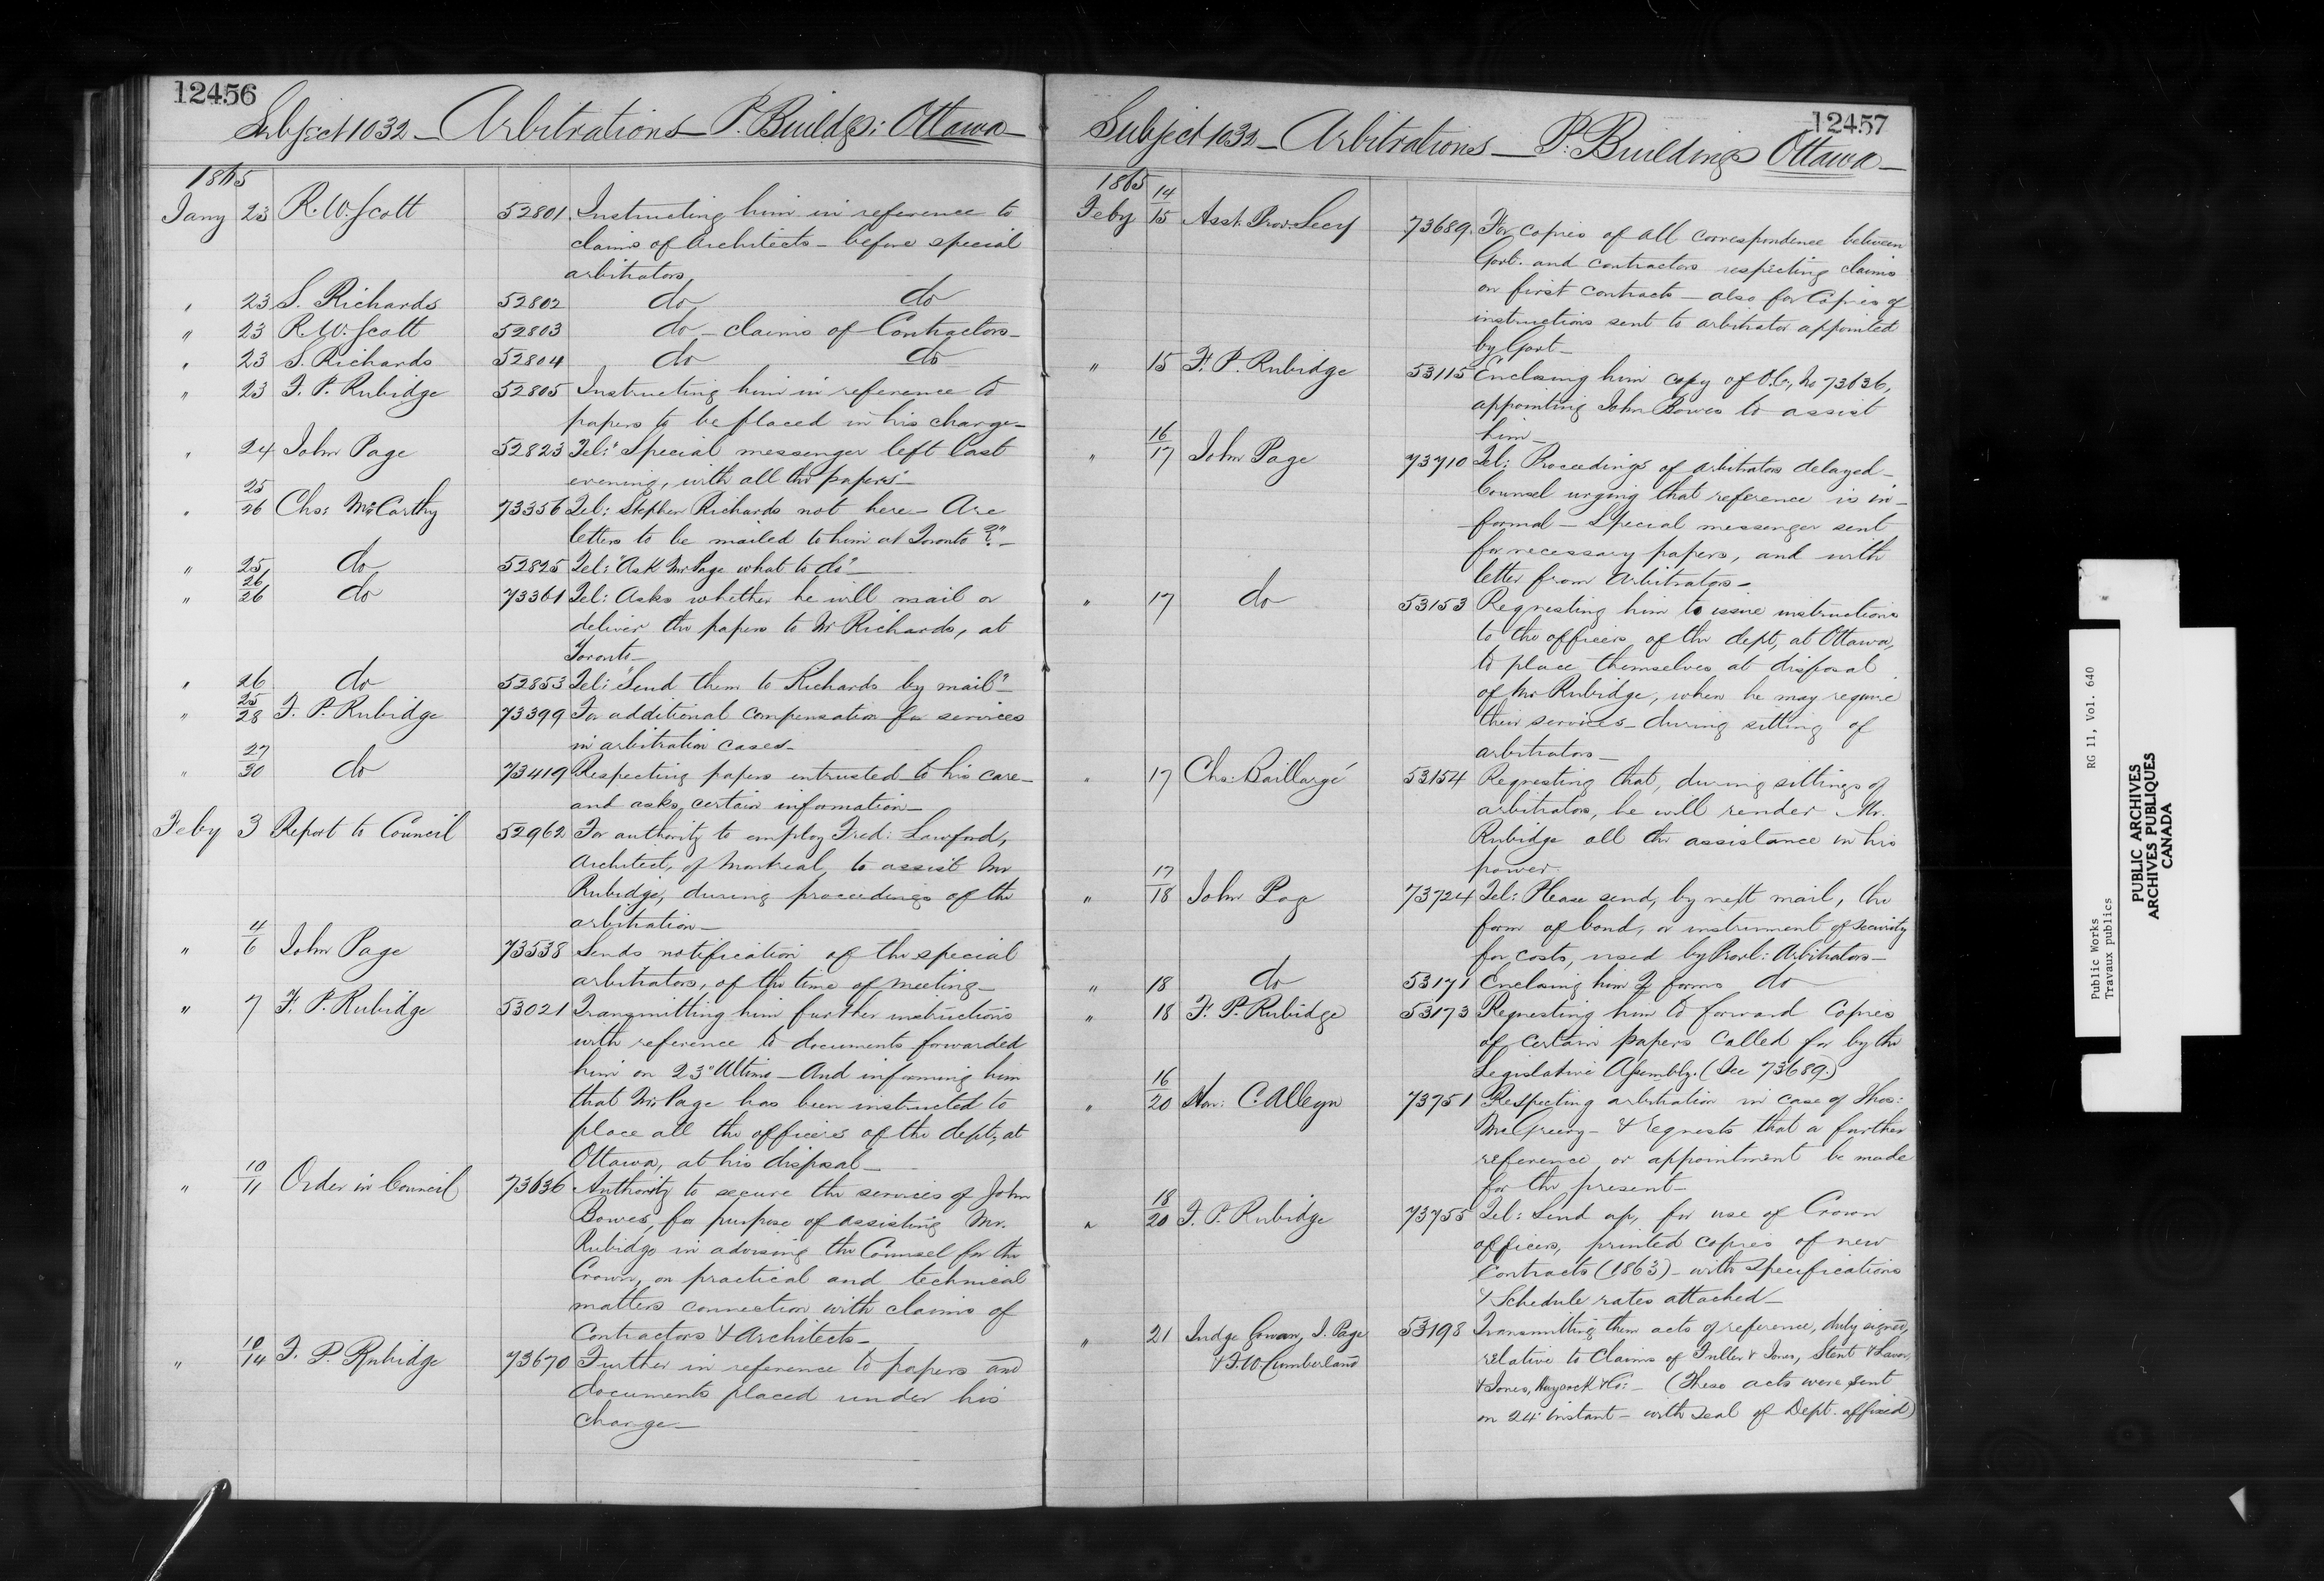 12456
Subject 1032 - Arbitrations - P. Buildgs: Ottawa -
1865
Jany 23 R. W. Scott 52801 Instructing him in reference to
claims of Architects - before special
arbitrators
" 23 S. Richards 52802 do do
" 23 R. W. Scott 52803 do - claims of Contractors -
" 23 S. Richards 52804 do do
" 23 F. P. Rubidge 52805 Instructing him in reference to
papers to be placed in his charge -
" 24 John Page 52823 Tel: "Special messenger left last
evening, with all the papers" -
" 25/26 Chs: McCarthy 73356 Tel: Stephen Richards not here - Are
letters to be mailed to him at Toronto ?" -
" 25 do 52825 Tel: "Ask Mr Page what to do" -
" 26/26 do 73361 Tel: Asks whether he will mail or
deliver the papers to Mr Richards, at
Toronto -
" 26 do 52853 Tel: "Send them to Richards by mail" -
" 25/28 F. P. Rubidge 73399 For additional compensation for services
in arbitration cases -
" 27/30 do 73419 Respecting papers entrusted to his care -
and asks certain information -
Feby 3 Report to Council 52962 For authority to employ Fred: Lawford,
Architect, of Montreal, to assist Mr
Rubidge, during proceedings of the
arbitration -
" 4/6 John Page 73538 Sends notification of the special
arbitrators, of the time of meeting -
" 7 F. P. Rubidge 53021 Transmitting him further instructions
with reference to documents forwarded
him on 23d Ultimo - And informing him
that Mr. Page has been instructed to
place all the officers of the dept, at
Ottawa, at his disposal -
" 10/11 Order in Council 73636 Authority to secure the services of John
Bowes, for purpose of assisting Mr.
Rubidge in advising the Counsel for the
Crown, on practical and technical
matters connection with claims of
Contractors & Architects -
" 10/14 F. P. Rubidge 73670 Further in reference to papers and
documents placed under his
charge -
12457
Subject 1032 - Arbitrations - P. Buildings Ottawa -
1865
Feby 14/15 Asst. Prov. Secy 73689. For copies of all correspondence between
Govt. and contractors respecting claims
on first contracts - also for Copies of
instructions sent to arbitrator appointed
by Govt -
" 15 F. P. Rubidge 53115 Enclosing him copy of O.C., No 73636,
appointing John Bowes to assist
him -
" 16/17 John Page 73710 Tel: Proceedings of arbitrators delayed -
Counsel urging that reference is in-
formal - Special messenger sent
for necessary papers, and with
letter from Arbitrators -
" 17 do 53153 Requesting him to issue instructions
to the officers of the dept, at Ottawa,
to place themselves at disposal
of Mr Rubidge, when he may require
their services - during sitting of
arbitrators -
" 17 Chs: Baillargé 53154 Requesting that, during sittings of
arbitrators, he will render Mr.
Rubidge all the assistance in his
power.
" 17/18 John Page 73724 Tel: Please send, by next mail, the
form of bond, or instrument of security
for costs, used by Provl: Arbitrators -
" 18 do 53171 Enclosing him 2 forms do
" 18 F. P. Rubidge 53173 Requesting him to forward Copies
of certain papers called for by the
Legislative Assembly. (See 73689.)
" 16/20 Hon: C. Alleyn 73751 Respecting arbitration in case of Thos:
McGreevy - & requests that a further
reference or appointment be made
for the present -
" 18/20 F. P. Rubidge 73755 Tel: Send up, for use of Crown
officers, printed copies of new
Contracts (1863) - with Specifications
& Schedule rates attached -
" 21 Judge Gowan, J. Page 53198 Transmitting them acts of reference, duly signed,
& F. W. Cumberland relative to Claims of Fuller & Jones, Stent & Laver,
& Jones, Haycock & Co: - (These acts were sent
on 24th instant - with Seal of Dept. affixed)
Public Works RG 11, Vol. 640
Travaux publics
PUBLIC ARCHIVES
ARCHIVES PUBLIQUES
CANADA